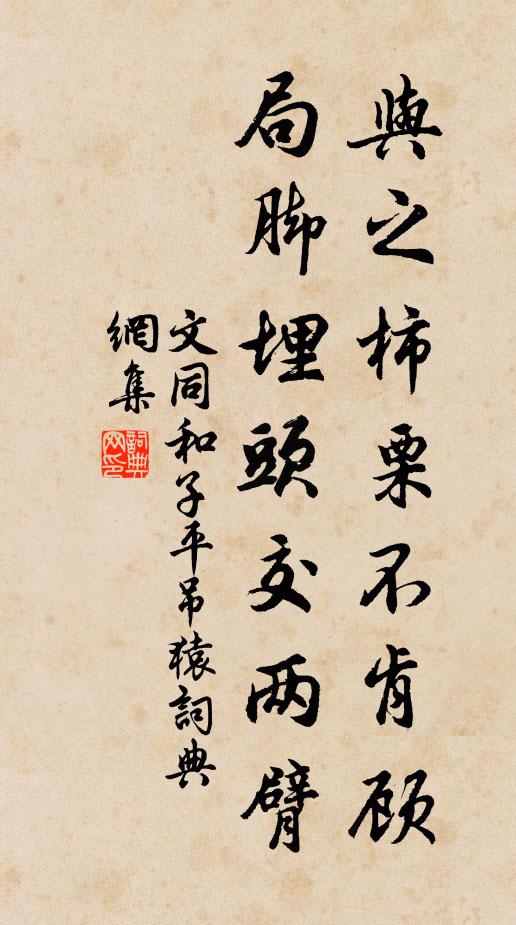 與之柿栗不肯顾
局脚埋頭交两臂
文同和子平吊猿詞典
網集
詞典
网印